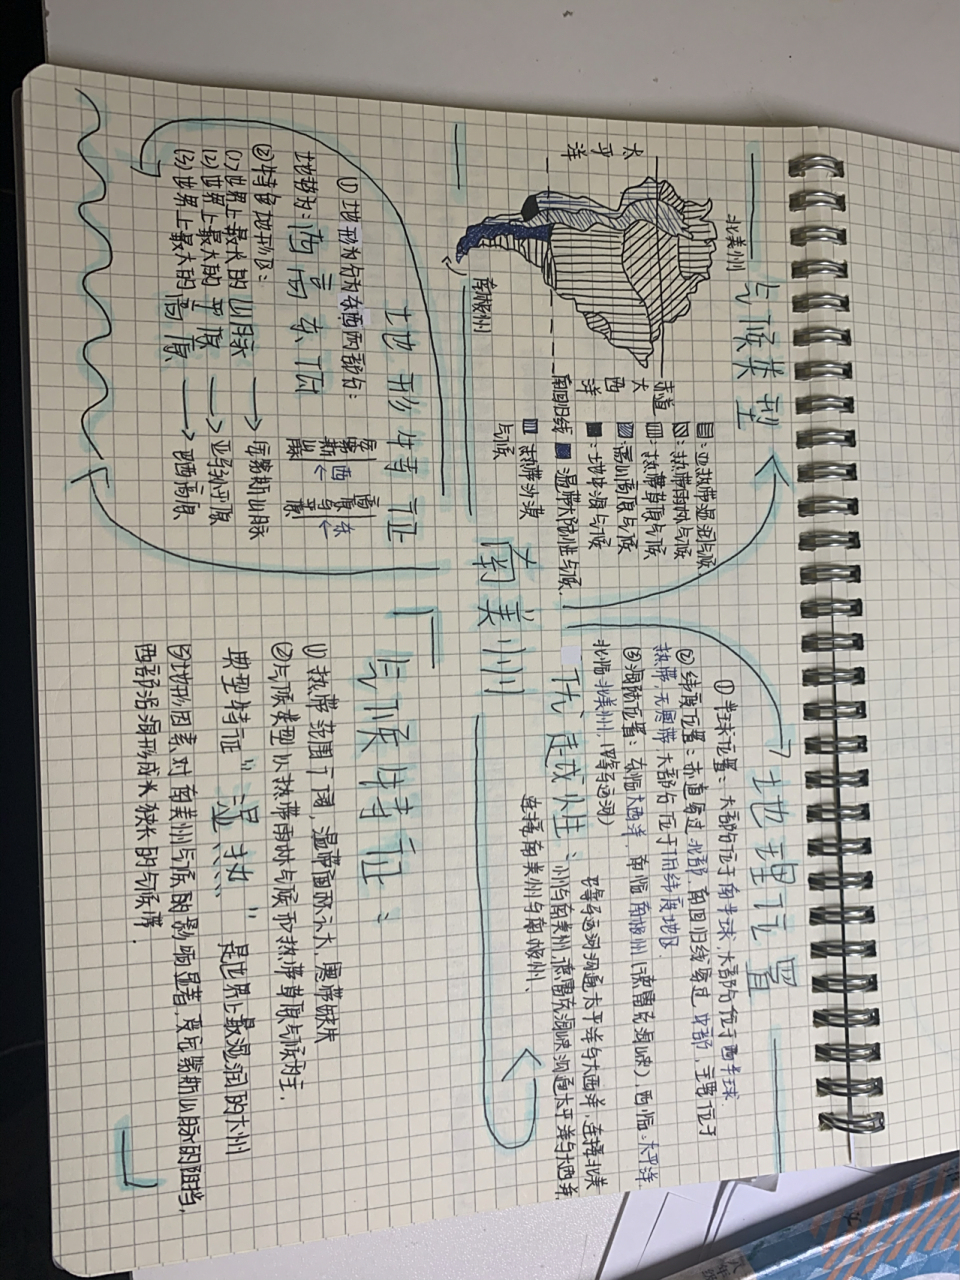 南美洲
气候类型
北美洲
太平洋
大西洋
赤道
南回归线
南极洲
:亚热带湿润气候
:热带雨林气候
:热带草原气候
:高山高原气候
:地中海气候
:温带大陆性气候
:热带沙漠气候
地理位置
①半球位置：大部分位于南半球，大部分位于西半球.
②纬度位置：赤道穿过北部，南回归线穿过中部，主要位于
热带，无寒带 大部分位于中低纬度地区
③海陆位置：东临大西洋，南临南极洲（德雷克海峡），西临太平洋，
北临北美洲，（巴拿马运河）
优越性：
巴拿马运河沟通太平洋与大西洋，连接北美
洲与南美洲，德雷克海峡沟通太平洋与大西洋
连接南美洲与南极洲、
地形特征
①地形分为东西两部分：
西 安第斯山脉
东 高原平原
地势为：南高东下
②特色地形区：
(1)世界上最大的山脉 → 安第斯山脉
(2)世界上最大的平原 → 亚马孙平原
(3)世界上最大的高原 → 巴西高原
气候特征：
①热带范围广阔，温带面积不大，寒带缺失
②气候类型以热带雨林气候和热带草原气候为主，
典型特征“湿热” 是世界上最湿润的大州
③地形因素对南美州气候的影响显著，受安第斯山脉的阻挡，
西部沿海形成水狭长的气候带.